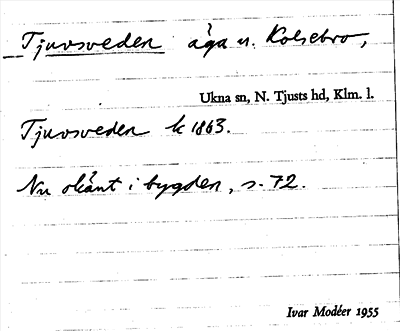 Tjuvsveden äga u. Kolsebro,
Ukna sn, N. Tjusts hd, Klm. l.
Tjuvsveden k 1863.
Nu okänt i bygden, s. 72.
Ivar Modéer 1955